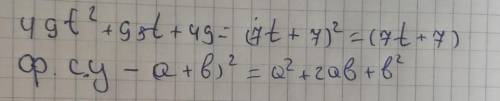 49t² + 98t + 49 = (7t + 7)² = (7t + 7)
ф. с.у - a + b)² = a² + 2ab + b²